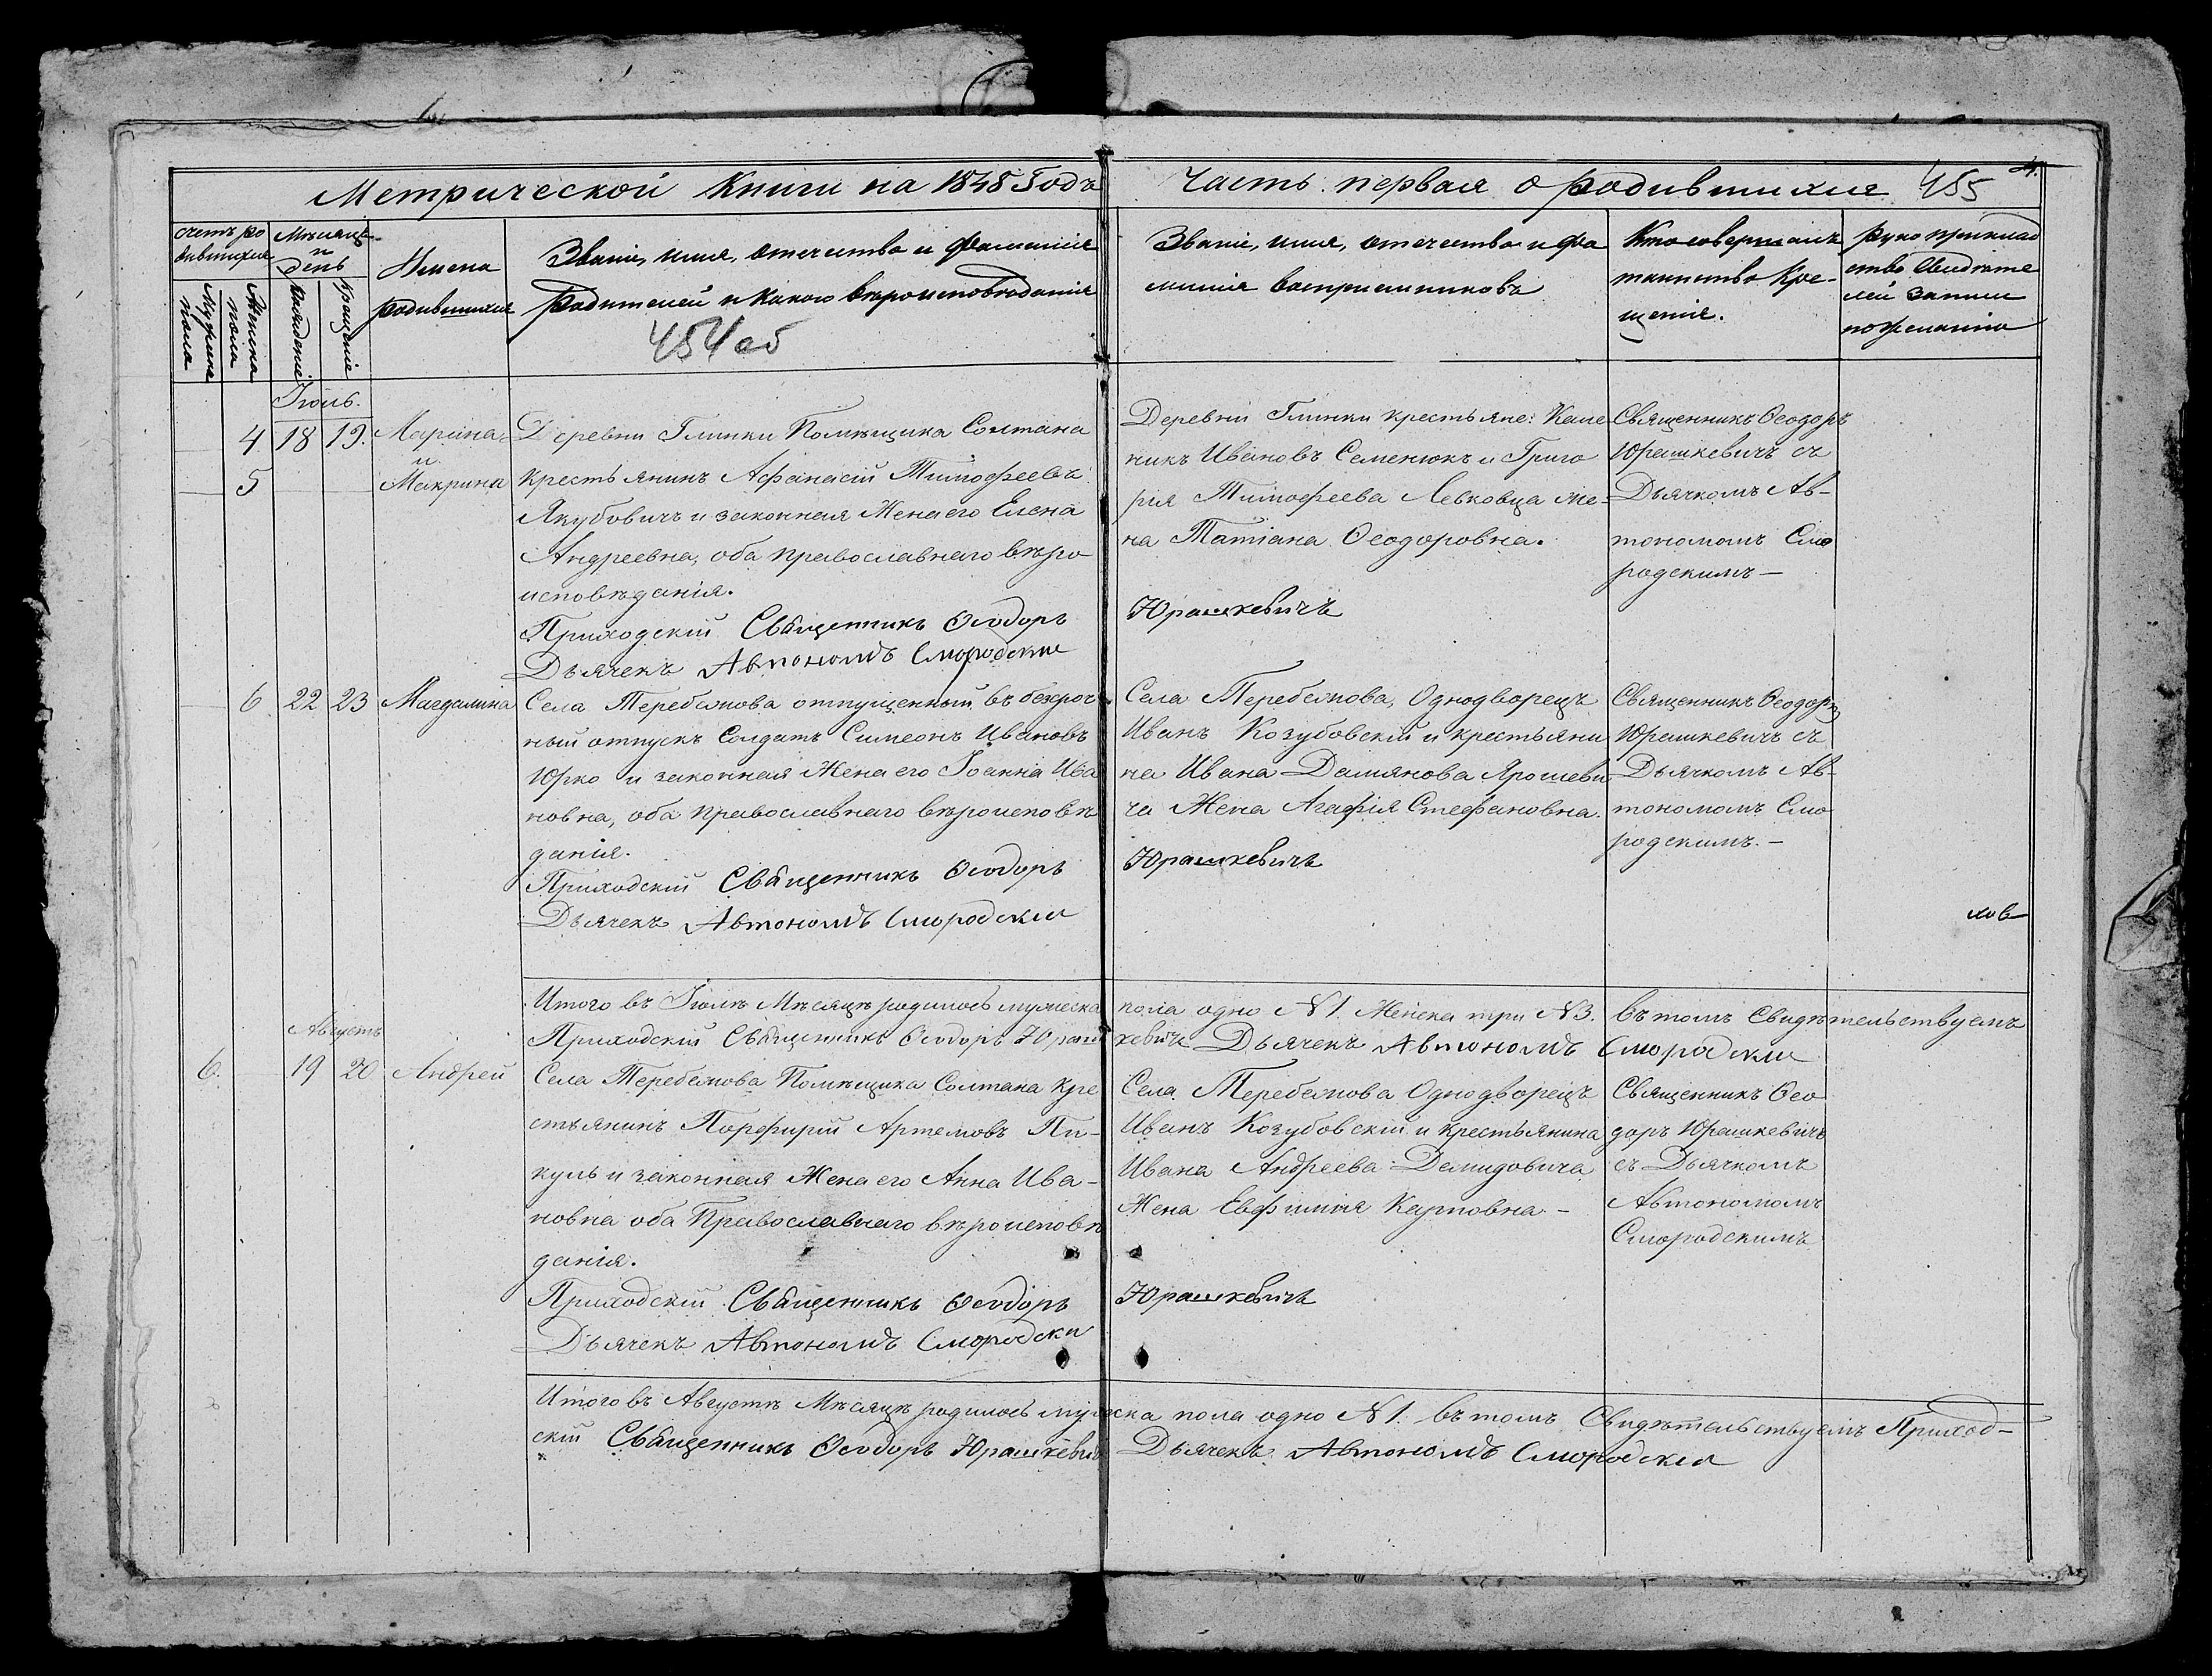 Метрической Книги на 1848 Годъ
Часть первая о родившихся 455
счетъ ро
дившихся
Мужеска
пола
Женска
пола
Мѣсяцъ
и
день
рожденіе
крещеніе
Имена
родившихся
Званіе, имя, отечество и фамилія
родителей и какого вѣроисповѣданія
454 об
Званіе, имя, отечество и фа
милія воспріемниковъ
Кто совершалъ
таинство Кре-
щенія.
рукоприклад
ство свидѣте
лей записи
по желанію
Іюль.
4 18 19. Марина
и
5 Макрина
Деревни Глинки Помѣщика Солтана
крестьянинъ Афанасій Тимофеевъ
Якубовичъ и законная Жена его Елена
Андреевна, оба православнаго вѣро
исповѣданія.
Приходскій Священникъ Ѳеодоръ
Дьячекъ Автономъ Смородскій
Деревни Глинки крестьяне: Кале
никъ Ивановъ Семенюкъ и Григо
рія Тимофеева Левковца же-
на Татіана Ѳеодоровна.
Юрашкевичъ
Священникъ Ѳеодоръ
Юрашкевичъ съ
Дьячкомъ Ав-
тономомъ Смо
родскимъ –
6 22 23 Магдалина
Села Теребежова отпущенный въ безсроч
ный отпускъ Солдатъ Симеонъ Ивановъ
Юрко и законная Жена его Іоанна Ива
новна, оба православнаго вѣроисповѣ
данія.
Приходскій Священникъ Ѳеодоръ
Дьячекъ Автономъ Смородскій
Села Теребежова, Однодворецъ
Иванъ Козубовскій и крестьяни
на Ивана Дамянова Ярошеви
ча Жена Агафія Стефановна.
Юрашкевичъ
Священникъ Ѳеодоръ
Юрашкевичъ съ
Дьячкомъ Ав-
тономомъ Смо
родскимъ. –
Итого въ Іюлѣ Мѣсяцѣ родилось мужеска пола одно N 1. Женска три N 3. въ томъ Свидѣтельствуемъ
Приходскій Священникъ Ѳеодоръ Юрашкевичъ Дьячекъ Автономъ Смородскій
Августъ
6. 19 20 Андрей
Села Теребежова Помѣщика Солтана кре
стьянинъ Порфирій Артемовъ Пи-
куль и законная Жена его Анна Ива-
новна оба Православнаго вѣроисповѣ
данія.
Приходскій Священникъ Ѳеодоръ
Дьячекъ Автономъ Смородскій
Села Теребежова Однодворецъ
Иванъ Козубовскій и крестьянина
Ивана Андреева Демидовича
Жена Евфимія Карповна –
Юрашкевичъ
Священникъ Ѳео
доръ Юрашкевичъ
съ Дьячкомъ
Автономомъ
Смородскимъ
Итого въ Августѣ Мѣсяцѣ родилось мужеска пола одно N 1. въ томъ Свидѣтельствуемъ Приход-
скій Священникъ Ѳеодоръ Юрашкевичъ Дьячекъ Автономъ Смородскій